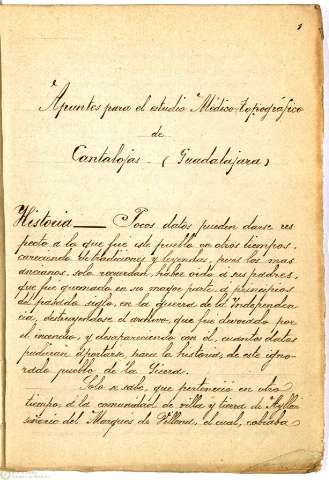 1
Apuntes para el estudio Médico-topográfico
de
Cantalojas (Guadalajara)
Historia — Pocos datos pueden darse res
pecto a lo que fué este pueblo en otros tiempos,
careciendo de tradiciones y leyendas, pues los mas
ancianos solo recuerdan, haber oido á sus padres,
que fué quemado en su mayor parte á principios
del pasado siglo, en la guerra de la Independen
cia, destruyendose el archivo, que fué devorado por
el incendio, y desapareciendo con él, cuantos datos
pudieran aportarse, para la historia, de este igno
rado pueblo de la Sierra.
Solo se sabe, que perteneció en otro
tiempo á la comunidad de villa y tierra de Ayllon
señorio del Marques de Villena, el cual, cobraba